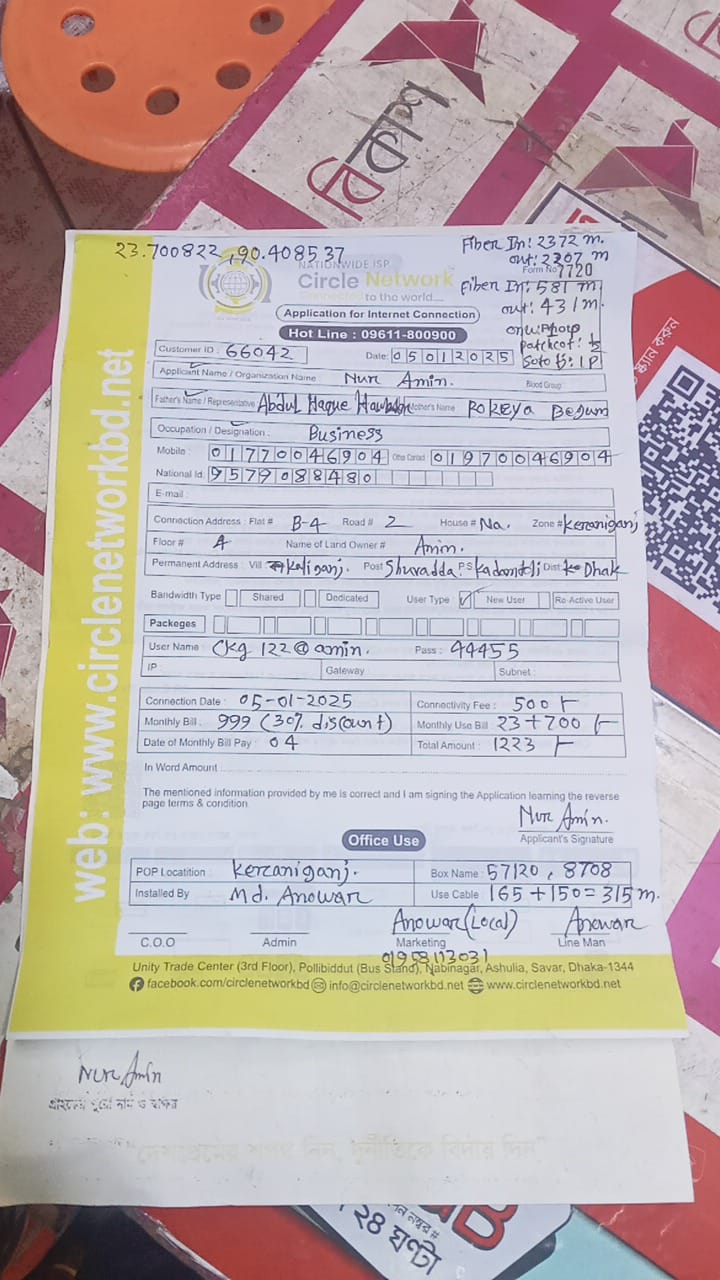 বিকাশ
স্ক্যান করুন
23.700822, 90.408537
Fiber In: 2372 m.
out: 2207 m
NATIONWIDE ISP
Form No 7720
Circle Network
Fiber In: 581 m
Connected to the world....
out: 431 m.
Application for Internet Connection
Hot Line : 09611-800900
Customer ID : 66042 Date: 05012025
Applicant Name / Organization Name Nur Amin. Blood Group
Father's Name / Representative Abdul Haque Mother's Name Rokeya Begum
Occupation / Designation : Business
Mobile : 01770046904 Other Contact 01970046904
National Id: 9579088480
E-mail :
Connection Address : Flat # B-4 Road # 2 House # Na. Zone # Keraniganj
Floor # 4 Name of Land Owner # Amin.
Permanent Address : Vill Kaliganj. Post Shuvadda P.S. Dist:
Bandwidth Type Shared Dedicated User Type : New User Re-Active User
Packeges
User Name : Ckg 122@amin. Pass : 44455
IP : Gateway Subnet :
Connection Date : 05-01-2025 Connectivity Fee : 500
Monthly Bill : 999 (30% discount) Monthly Use Bill 23+700
Date of Monthly Bill Pay : 04 Total Amount : 1223
In Word Amount
The mentioned information provided by me is correct and I am signing the Application learning the reverse
page terms & condition.
Nur Amin.
Applicant's Signature
Office Use
POP Locatition : Keraniganj. Box Name : 57120, 8708
Installed By Md. Anowar Use Cable : 165+150=315 m.
Anowar (Local) Anowar
C.O.O Admin Marketing Line Man
01958113031
Unity Trade Center (3rd Floor), Pollibiddut (Bus Stand), Nabinagar, Ashulia, Savar, Dhaka-1344
facebook.com/circlenetworkbd info@circlenetworkbd.net www.circlenetworkbd.net
web: www.circlenetworkbd.net
Nur Amin
দেশপ্রেমের শপথ নিন, দুর্নীতিকে বিদায় দিন
২৪ ঘণ্টা